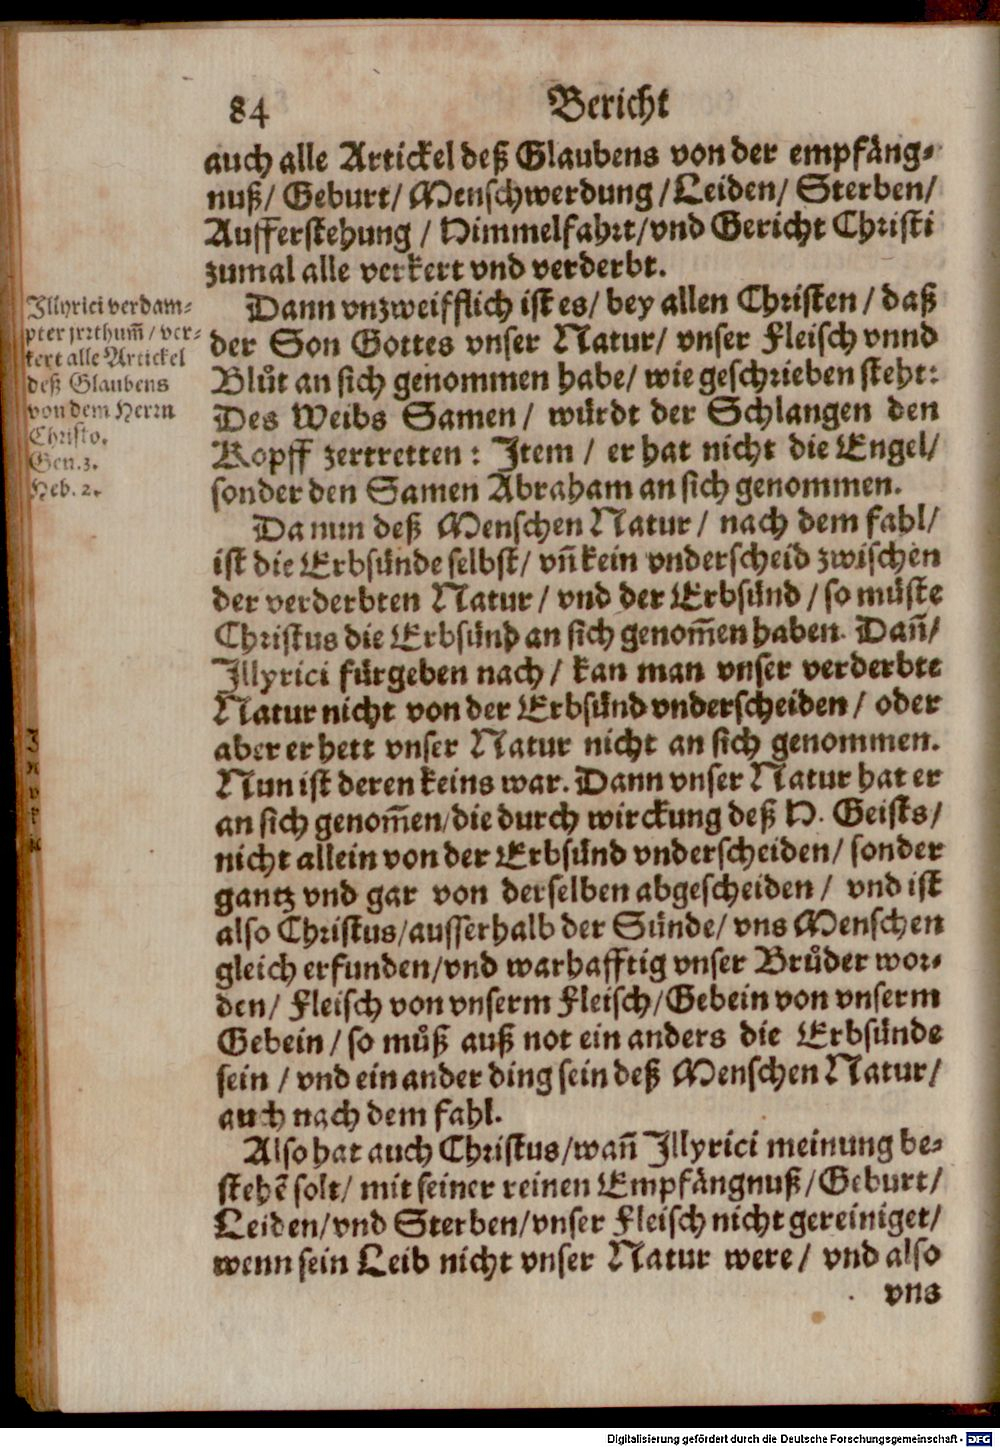 84 Bericht
auch alle Artickel deß Glaubens von der empfäng-
nuß/ Geburt/ Menschwerdung/ Leiden/ Sterben/
Aufferstehung / Himmelfahrt/ vnd Gericht Christi
zumal alle verkert vnd verderbt.
Dann vnzweifflich ist es/ bey allen Christen / daß
der Son Gottes vnser Natur/ vnser Fleisch vnnd
Blůt an sich genommen habe/ wie geschrieben steht:
Des Weibs Samen / würdt der Schlangen den
Kopff zertretten : Item / er hat nicht die Engel/
sonder den Samen Abraham an sich genommen.
Illyrici verdam-
pter jrrthum̃/ ver-
kert alle Artickel
deß Glaubens
von dem Herrn
Christo.
Gen. 3.
Heb. 2.
Da nun deß Menschen Natur / nach dem fahl/
ist die Erbsünde selbst/ vñ kein vnderscheid zwischen
der verderbten Natur / vnd der Erbsünd / so müste
Christus die Erbsünd an sich genom̃en haben. Dañ/
Illyrici fürgeben nach / kan man vnser verderbte
Natur nicht von der Erbsünd vnderscheiden / oder
aber er hett vnser Natur nicht an sich genommen.
Nun ist deren keins war. Dann vnser Natur hat er
an sich genom̃en/ die durch wirckung deß H. Geists/
nicht allein von der Erbsünd vnderscheiden/ sonder
gantz vnd gar von derselben abgescheiden / vnd ist
also Christus/ ausserhalb der Sünde/ vns Menschen
gleich erfunden/ vnd warhafftig vnser Brůder wor-
den/ Fleisch von vnserm Fleisch/ Gebein von vnserm
Gebein / so můß auß not ein anders die Erbsünde
sein / vnd ein ander ding sein deß Menschen Natur/
auch nach dem fahl.
Also hat auch Christus/ wañ Illyrici meinung be-
stehẽ solt/ mit seiner reinen Empfängnuß/ Geburt/
Leiden/ vnd Sterben/ vnser Fleisch nicht gereiniget/
wenn sein Leib nicht vnser Natur were / vnd also
vns
Digitalisierung gefördert durch die Deutsche Forschungsgemeinschaft - DFG